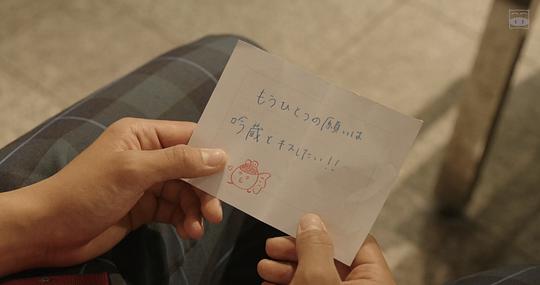 もうひとつの願いは
吟蔵とキスしたい!!